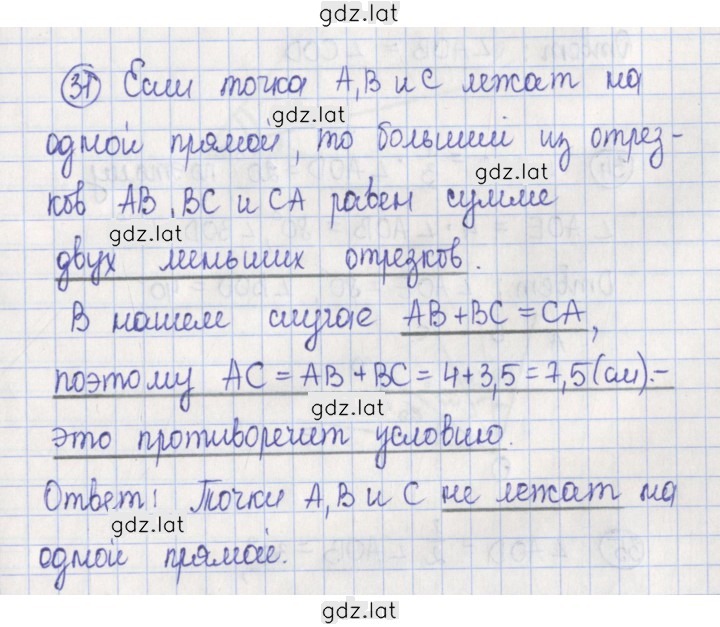 gdz.lat
31 Если точка A, B и C лежат на
gdz.lat
одной прямой, то больший из отрез-
gdz.lat
ков AB, BC и CA равен сумме
gdz.lat
двух меньших отрезков.
В нашем случае AB + BC = CA,
поэтому AC = AB + BC = 4 + 3,5 = 7,5 (см). –
gdz.lat
это противоречит условию.
Ответ: Точки A, B и C не лежат на
gdz.lat
одной прямой.
gdz.lat